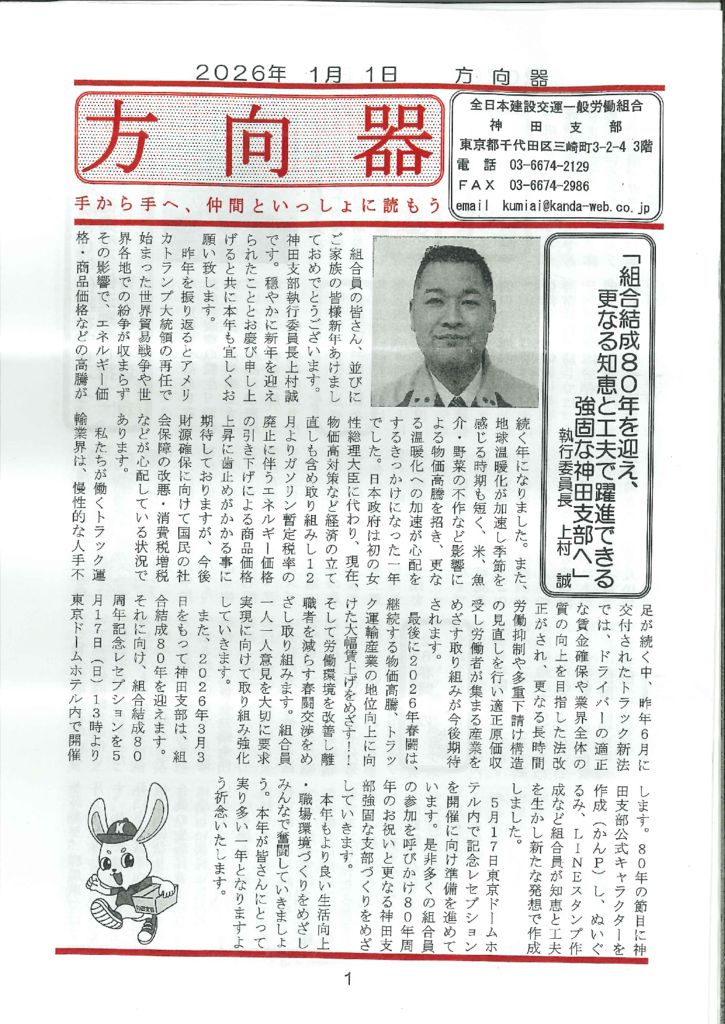 2026年 1月 1日 方向器
方向器
手から手へ、仲間といっしょに読もう
全日本建設交運一般労働組合
神田支部
東京都千代田区三崎町3-2-4 3階
電話 03-6674-2129
FAX 03-6674-2986
email kumiai@kanda-web.co.jp
「組合結成80年を迎え、
更なる知恵と工夫で躍進できる
強固な神田支部へ」
執行委員長 上村 誠
組合員の皆さん、並びに
ご家族の皆様新年あけまし
ておめでとうございます。
神田支部執行委員長上村誠
です。穏やかに新年を迎え
られたこととお慶び申し上
げると共に本年も宜しくお
願い致します。
昨年を振り返るとアメリ
カトランプ大統領の再任で
始まった世界貿易戦争や世
界各地での紛争が収まらず
その影響で、エネルギー価
格・商品価格などの高騰が
続く年になりました。また、
地球温暖化が加速し季節を
感じる時期も短く、米、魚
介・野菜の不作など影響に
よる物価高騰を招き、更な
る温暖化への加速が心配を
するきっかけになった一年
でした。日本政府は初の女
性総理大臣に代わり、現在、
物価高対策など経済の立て
直しも含め取り組みし12
月よりガソリン暫定税率の
廃止に伴うエネルギー価格
の引き下げによる商品価格
上昇に歯止めがかかる事に
期待しておりますが、今後
財源確保に向けて国民の社
会保障の改悪・消費税増税
などが心配している状況で
あります。
私たちが働くトラック運
輸業界は、慢性的な人手不
足が続く中、昨年6月に
交付されたトラック新法
では、ドライバーの適正
な賃金確保や業界全体の
質の向上を目指した法改
正がされ、更なる長時間
労働抑制や多重下請け構造
の見直しを行い適正原価収
受し労働者が集まる産業を
めざす取り組みが今後期待
されます。
最後に2026年春闘は、
継続する物価高騰、トラッ
ク運輸産業の地位向上に向
けた大幅賃上げをめざ!!
そして労働環境を改善し離
職者を減らす春闘交渉をめ
ざし取り組みます。組合員
一人一人意見を大切に要求
実現に向けて取り組み強化
していきます。
また、2026年3月3
日をもって神田支部は、組
合結成80年を迎えます。
それに向け、組合結成80
周年記念レセプションを5
月17日(日)13時より
東京ドームホテル内で開催
します。80年の節目に神
田支部公式キャラクターを
作成(かんP)し、ぬいぐ
るみ、LINEスタンプ作
成など組合員が知恵と工夫
を生かし新たな発想で作成
しました。
5月17日東京ドームホ
テル内で記念レセプション
を開催に向け準備を進めて
います。是非多くの組合員
の参加を呼びかけ80年周
年のお祝いと更なる神田支
部強固な支部づくりをめざ
していきます。
本年もより良い生活向上
・職場環境づくりをめざし
みんなで奮闘していきましょ
う。本年が皆さんにとって
実り多い一年となりますよ
う祈念いたします。
K
1